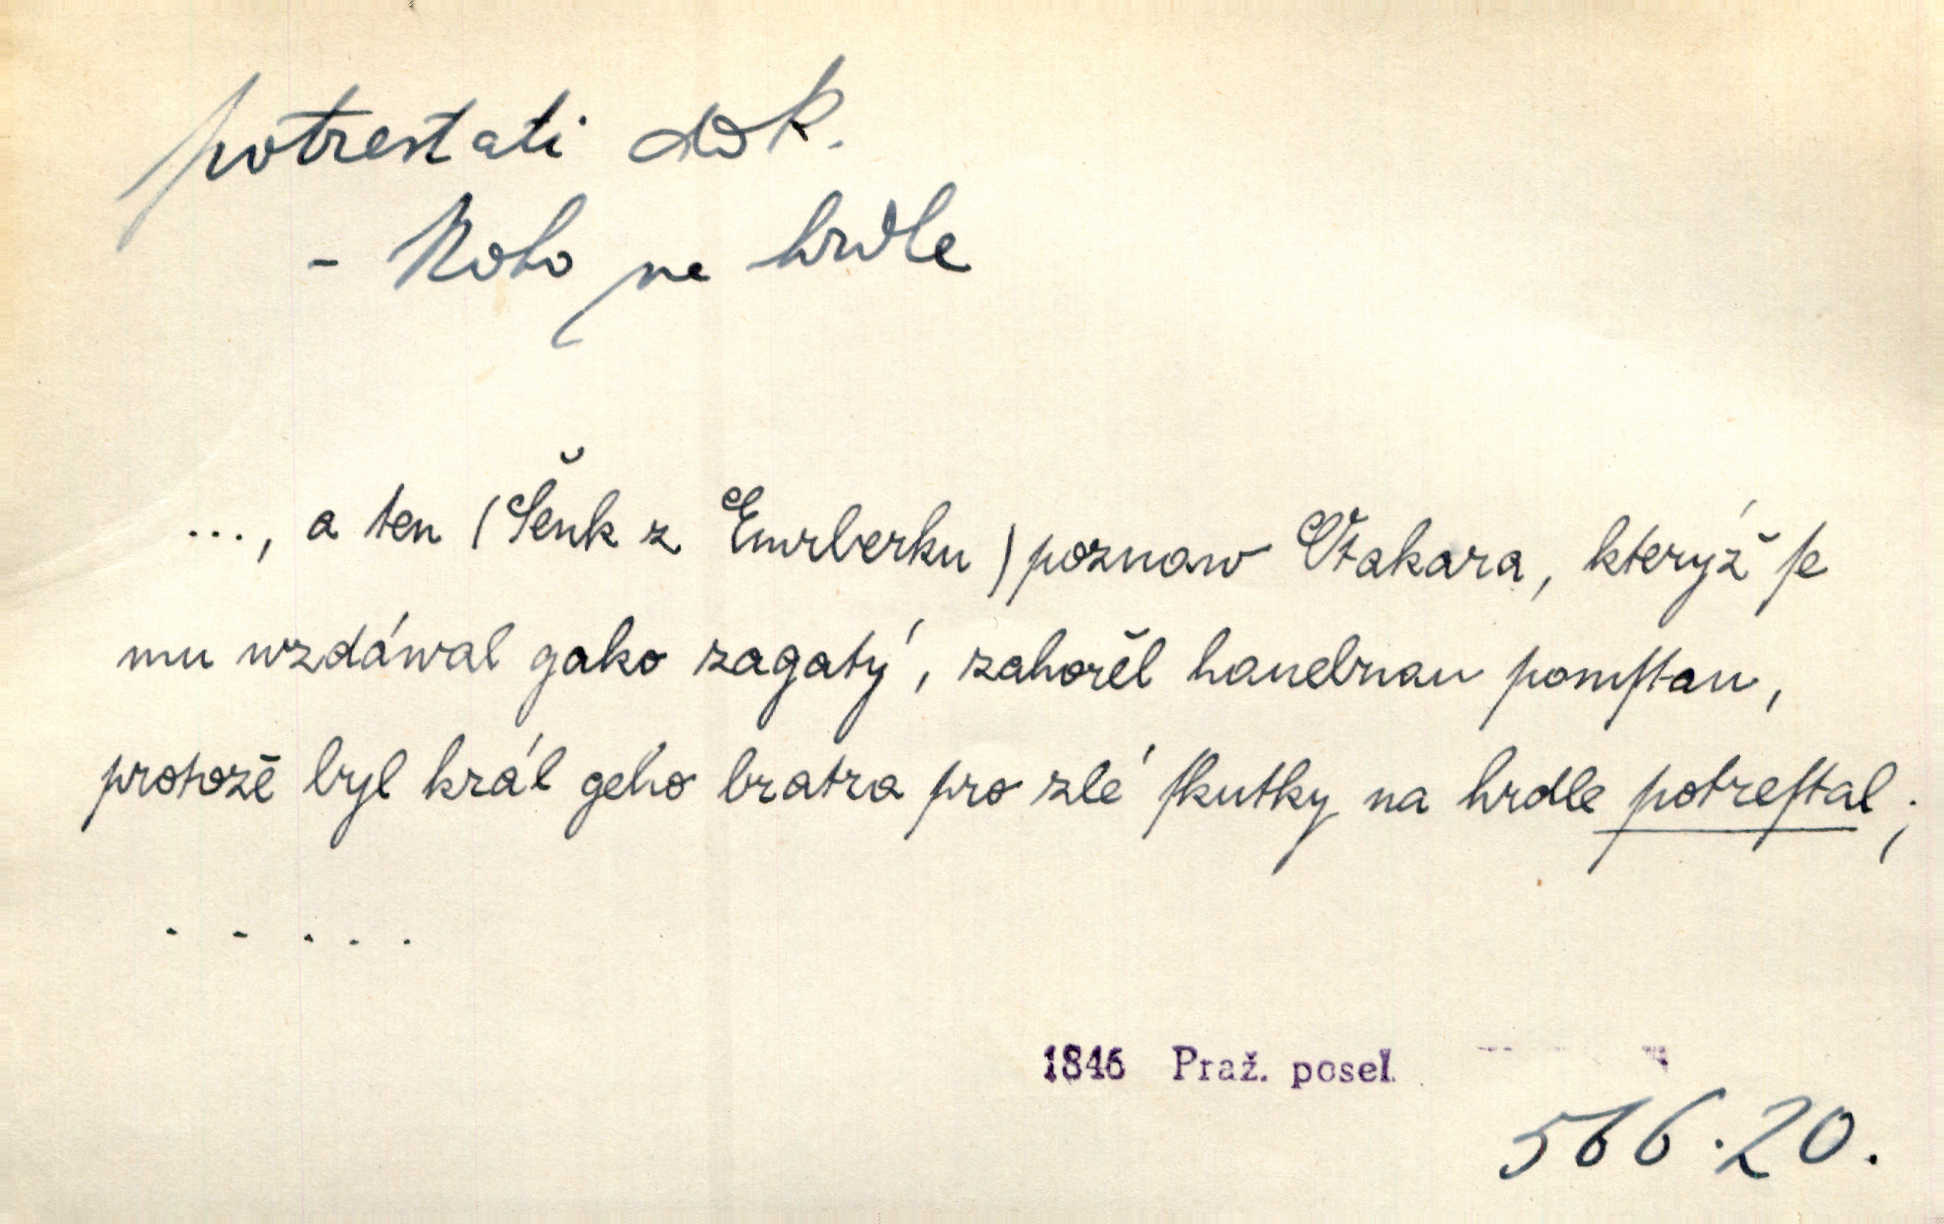 potrestati dok.
- Koho na hrdle
..., a ten (Šenk z Emrberku) poznaw Otakara, kterýž ſe
mu wzdáwal gako zagatý, zahorěl hanebnau pomſtau,
protožě byl král geho bratra pro zlé ſkutky na hrdle potreſtal;
. - . . .
1846 Praž. posel
566.20.